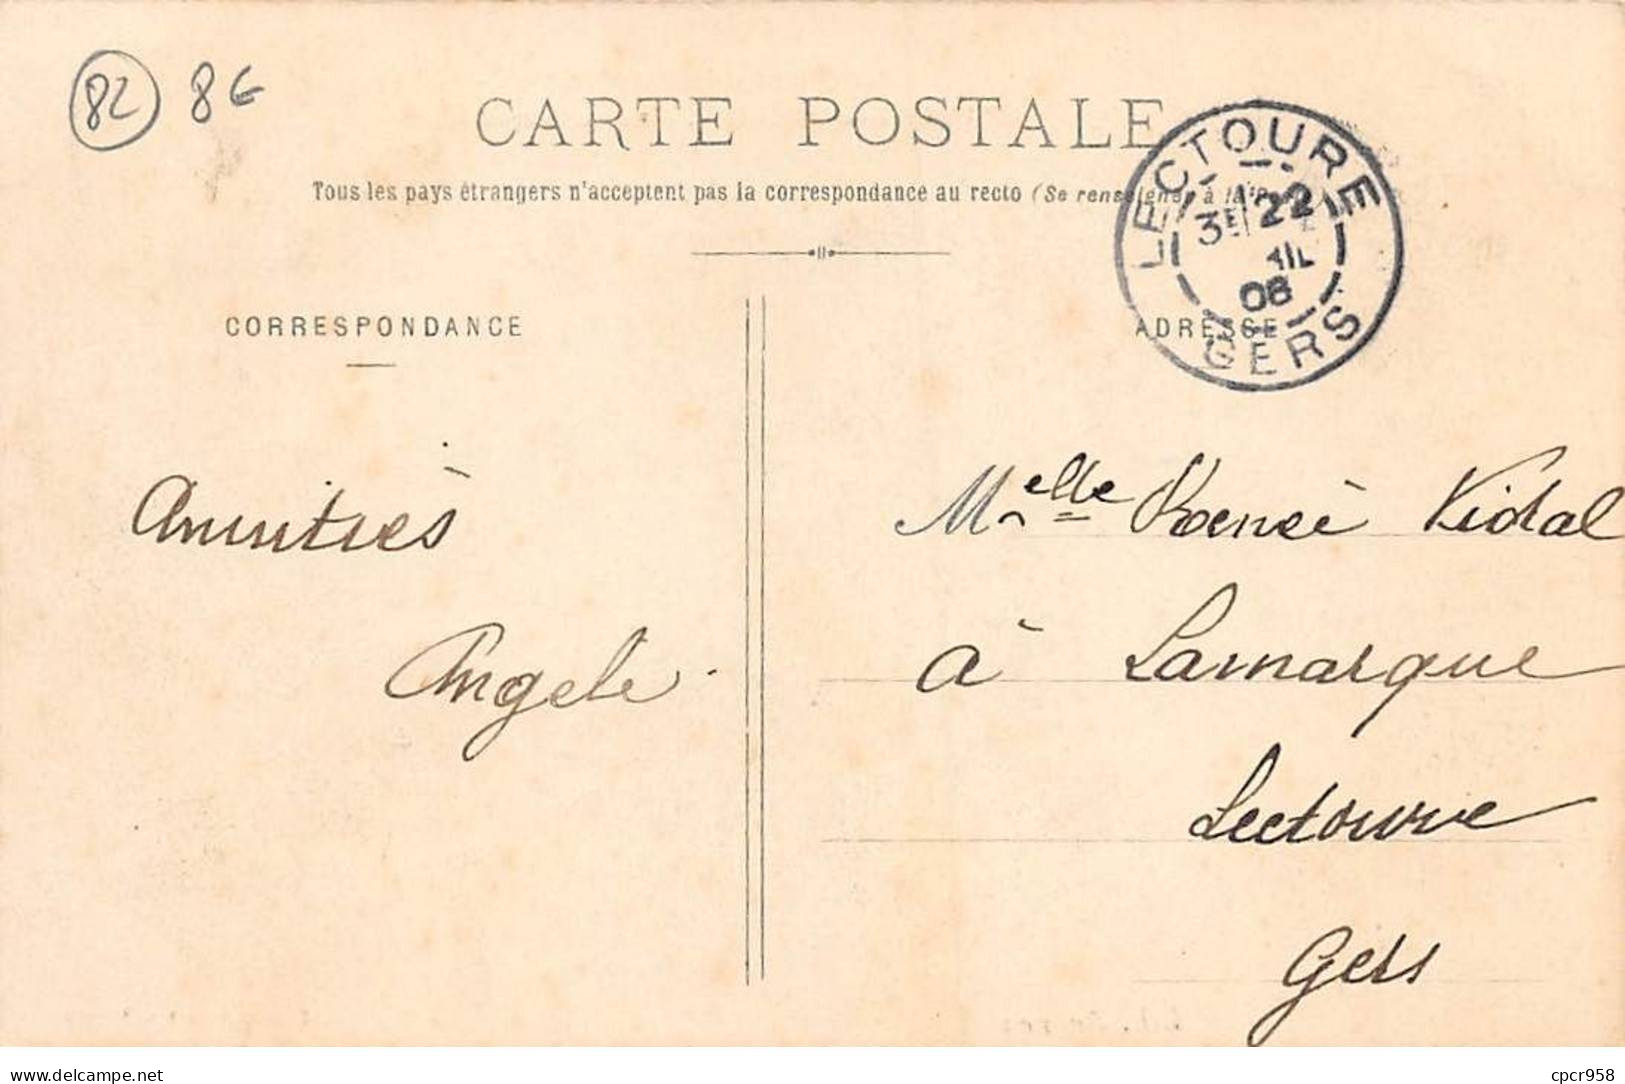 82 8€
CARTE POSTALE
Tous les pays étrangers n'acceptent pas la correspondance au recto (Se renseigner à la
LECTOURE
3E 22
08
GERS
CORRESPONDANCE
ADRESSE
Amitiès
Angele
Melle Renée Vidal
à Lamarque
Lectoure
Gers
www.delcampe.net
cpcr958